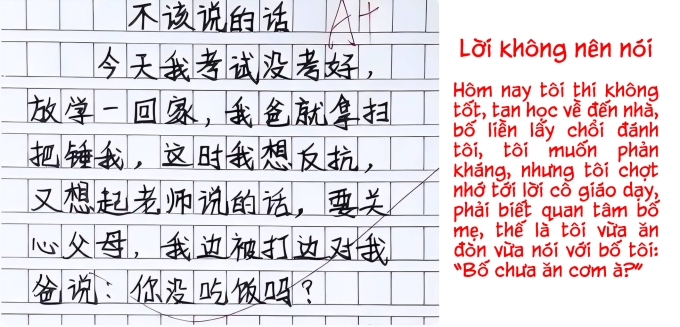 不该说的话
A+
今天我考试没考好，
放学一回家，我爸就拿扫
把锤我，这时我想反抗，
又想起老师说的话，要关
心父母，我边被打边对我
爸说：你没吃饭吗？
Lời không nên nói
Hôm nay tôi thi không
tốt, tan học về đến nhà,
bố liền lấy chổi đánh
tôi, tôi muốn phản
kháng, nhưng tôi chợt
nhớ tới lời cô giáo dạy,
phải biết quan tâm bố
mẹ, thế là tôi vừa ăn
đòn vừa nói với bố tôi:
"Bố chưa ăn cơm à?"